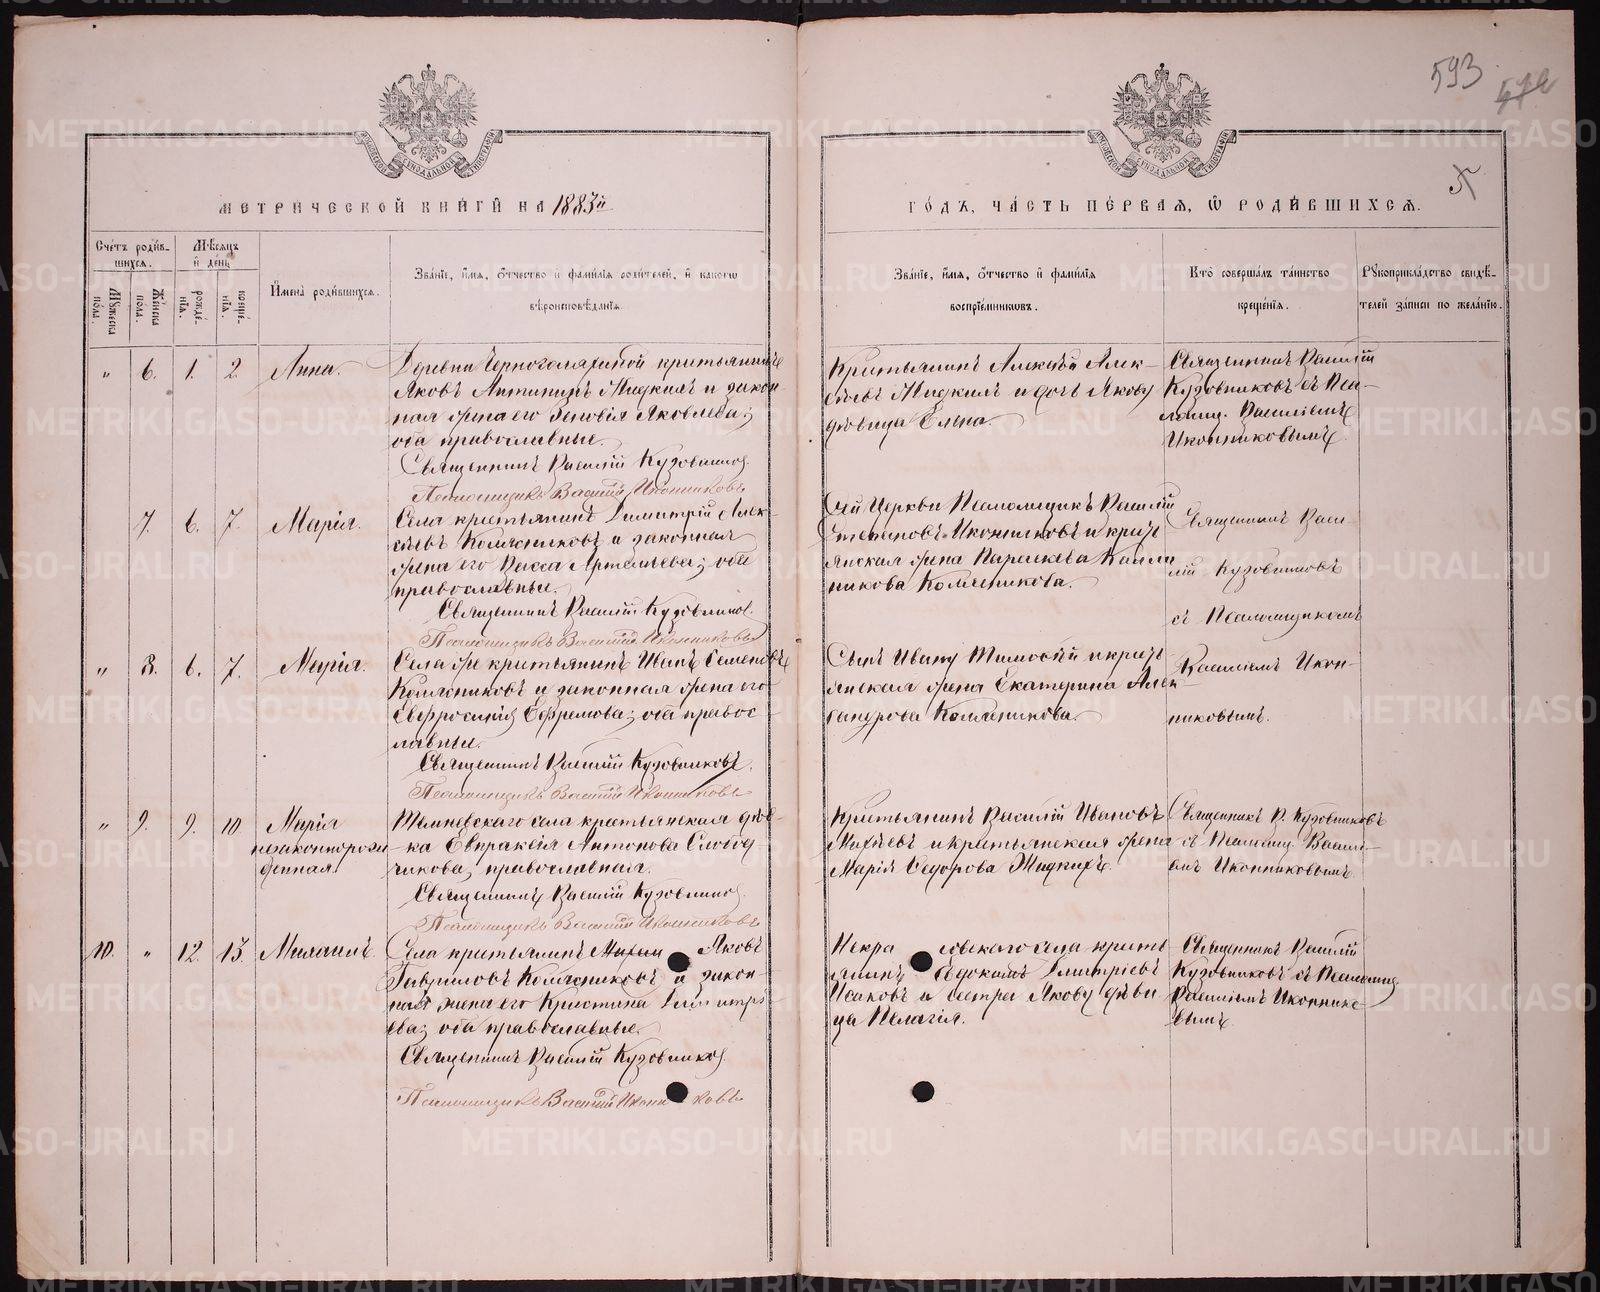 593
МЕТРИЧЕСКОЙ КНИГИ НА 1883й
ГОДЪ, ЧАСТЬ ПЕРВАЯ, Ѡ РОДИВШИХСЯ.
Счетъ родив-
шихся.
Мужеска пола.
Женска пола.
Мѣсяцъ
и день
рожде-
нія.
креще-
нія.
Имена родившихся.
Званіе, имя, отчество и фамилія родителей, и какого
вѣроисповѣданія.
Званіе, имя, отчество и фамилія
воспріемниковъ.
Кто совершалъ таинство
крещенія.
Рукоприкладство свидѣ-
телей записи по желанію.
" 6. 1. 2 Анна.
Деревни Черноголахиной крестьянинъ
Яковъ Антипинъ Жидкихъ и закон-
ная жена его Зеновія Яковлева;
оба православные.
Священникъ Василій Кузовниковъ.
Псаломщикъ Василій Иконниковъ
Крестьянинъ Алексѣй Алек-
сѣевъ Жидкихъ и дочь Якову
дѣвица Елена.
Священникъ Василій
Кузовниковъ съ Пса-
ломщ. Василіемъ
Иконниковымъ.
7. 6. 7. Марія.
Села крестьянинъ Димитрій Алек-
сѣевъ Колясниковъ и законная
жена его Васса Артемьева; оба
православные.
Священникъ Василій Кузовниковъ.
Псаломщикъ Василій Иконниковъ
Сей Церкви Псаломщикъ Василій
Степановъ Иконниковъ и крестьянская жена Параскева
никова Колясникова.
Священникъ Васи-
лій Кузовниковъ
съ Псаломщикомъ
" 8. 6. 7. Марія.
Села же крестьянинъ Иванъ Семеновъ
Колясниковъ и законная жена его
Евфросинія Ефремова; оба правос-
лавные.
Священникъ Василій Кузовниковъ.
Псаломщикъ Василій Иконниковъ
Сынъ Ивану Тимофей и кресть-
янская жена Екатерина Алек-
сандрова Колясникова.
Василіемъ Икон-
никовымъ.
" 9. 9. 10. Марія
незаконнорож-
денная.
села крестьянская дѣв-
ка Евпраксія Антонова Слобод-
чикова; православная.
Священникъ Василій Кузовниковъ.
Псаломщикъ Василій Иконниковъ
Крестьянинъ Василій Ивановъ
Михѣевъ и крестьянская жена
Марія Сидорова Жидкихъ.
Священникъ В. Кузовниковъ
съ Псаломщ. Васили-
емъ Иконниковымъ.
10. " 12. 13. Михаилъ.
Села крестьянинъ Яковъ
Гавриловъ Колясниковъ и закон-
ная жена его Христина Димитрі-
ева; оба православные.
Священникъ Василій Кузовниковъ.
Псаломщикъ Василій Иконниковъ
Некрасовскаго села кресть-
янинъ Евдокимъ Димитріевъ
Исаковъ и сестра Якову дѣви-
ца Пелагія.
Священникъ Василій
Кузовниковъ съ Псаломщ.
Василіемъ Иконнико-
вымъ.
METRIKI.GASO-URAL.RU